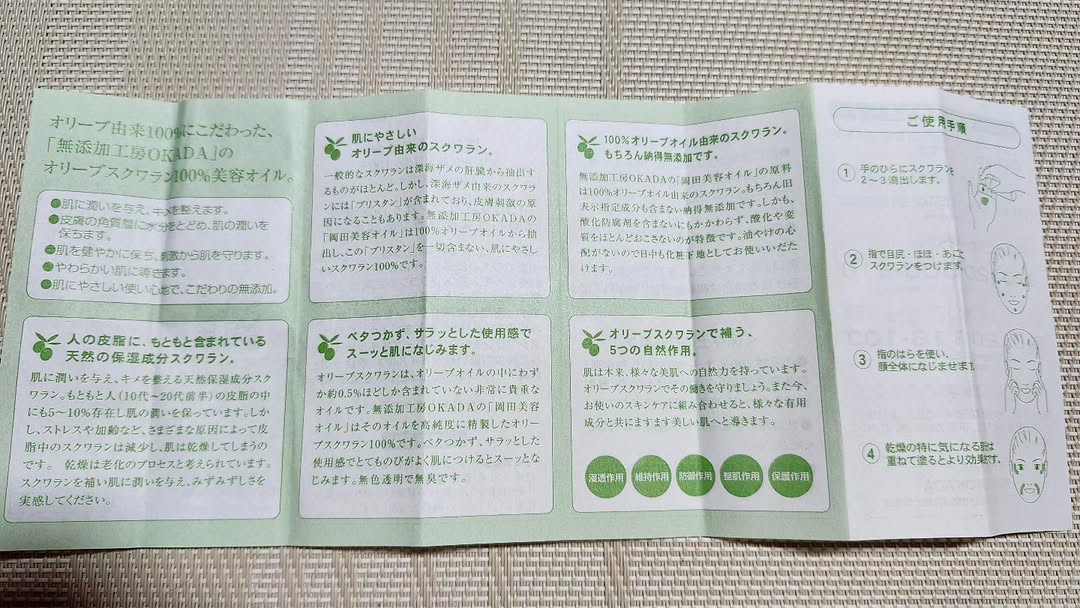 オリーブ由来100%にこだわった、
「無添加工房OKADA」の
オリーブスクワラン100%美容オイル。
●肌に潤いを与え、キメを整えます。
●皮膚の角質層に水分をとどめ、肌の潤いを
保ちます。
●肌を健やかに保ち、刺激から肌を守ります。
●やわらかい肌に導きます。
●肌にやさしい使い心地で、こだわりの無添加。
人の皮脂に、もともと含まれている
天然の保湿成分スクワラン。
肌に潤いを与え、キメを整える天然保湿成分スク
ワラン。もともと人(10代〜20代前半)の皮脂の中
にも5〜10%存在し肌の潤いを保っています。しか
し、ストレスや加齢など、さまざまな原因によって皮
脂中のスクワランは減少し、肌は乾燥してしまうの
です。 乾燥は老化のプロセスと考えられています。
スクワランを補い肌に潤いを与え、みずみずしさを
実感してください。
肌にやさしい
オリーブ由来のスクワラン。
一般的なスクワランは深海ザメの肝臓から抽出す
るものがほとんど。しかし、深海ザメ由来のスクワラ
ンには「プリスタン」が含まれており、皮膚刺激の原
因になることもあります。無添加工房OKADAの
「岡田美容オイル」は100%オリーブオイルから抽
出し、この「プリスタン」を一切含まない、肌にやさし
いスクワラン100%です。
ベタつかず、サラッとした使用感で
スーッと肌になじみます。
オリーブスクワランは、オリーブオイルの中にわず
か約0.5%ほどしか含まれていない非常に貴重な
オイルです。無添加工房OKADAの「岡田美容オ
イル」はそのオイルを高純度に精製したオリー
ブスクワラン100%です。ベタつかず、サラッとした
使用感でとてものびがよく肌につけるとスーッとな
じみます。無色透明で無臭です。
100%オリーブオイル由来のスクワラン。
もちろん納得無添加です。
無添加工房OKADAの「岡田美容オイル」の原料
は100%オリーブオイル由来のスクワラン。もちろん旧
表示指定成分も含まない納得無添加です。しかも、
酸化防腐剤を含まないにもかかわらず、酸化や変
質をほとんどおこさないのが特徴です。油やけの心
配がないので日中も化粧下地としてお使いいただ
けます。
オリーブスクワランで補う、
5つの自然作用。
肌は本来、様々な美肌への自然力を持っています。
オリーブスクワランでその働きを守りましょう。また今、
お使いのスキンケアに組み合わせると、様々な有用
成分と共にますます美しい肌へと導きます。
浸透作用 維持作用 防御作用 整肌作用 保護作用
ご使用手順
1 手のひらにスクワランを
2〜3滴出します。
2 指で目尻・ほほ・あごに
スクワランをつけます。
3 指のはらを使い、
顔全体になじませます。
4 乾燥の特に気になる部は
重ねて塗るとより効果です。